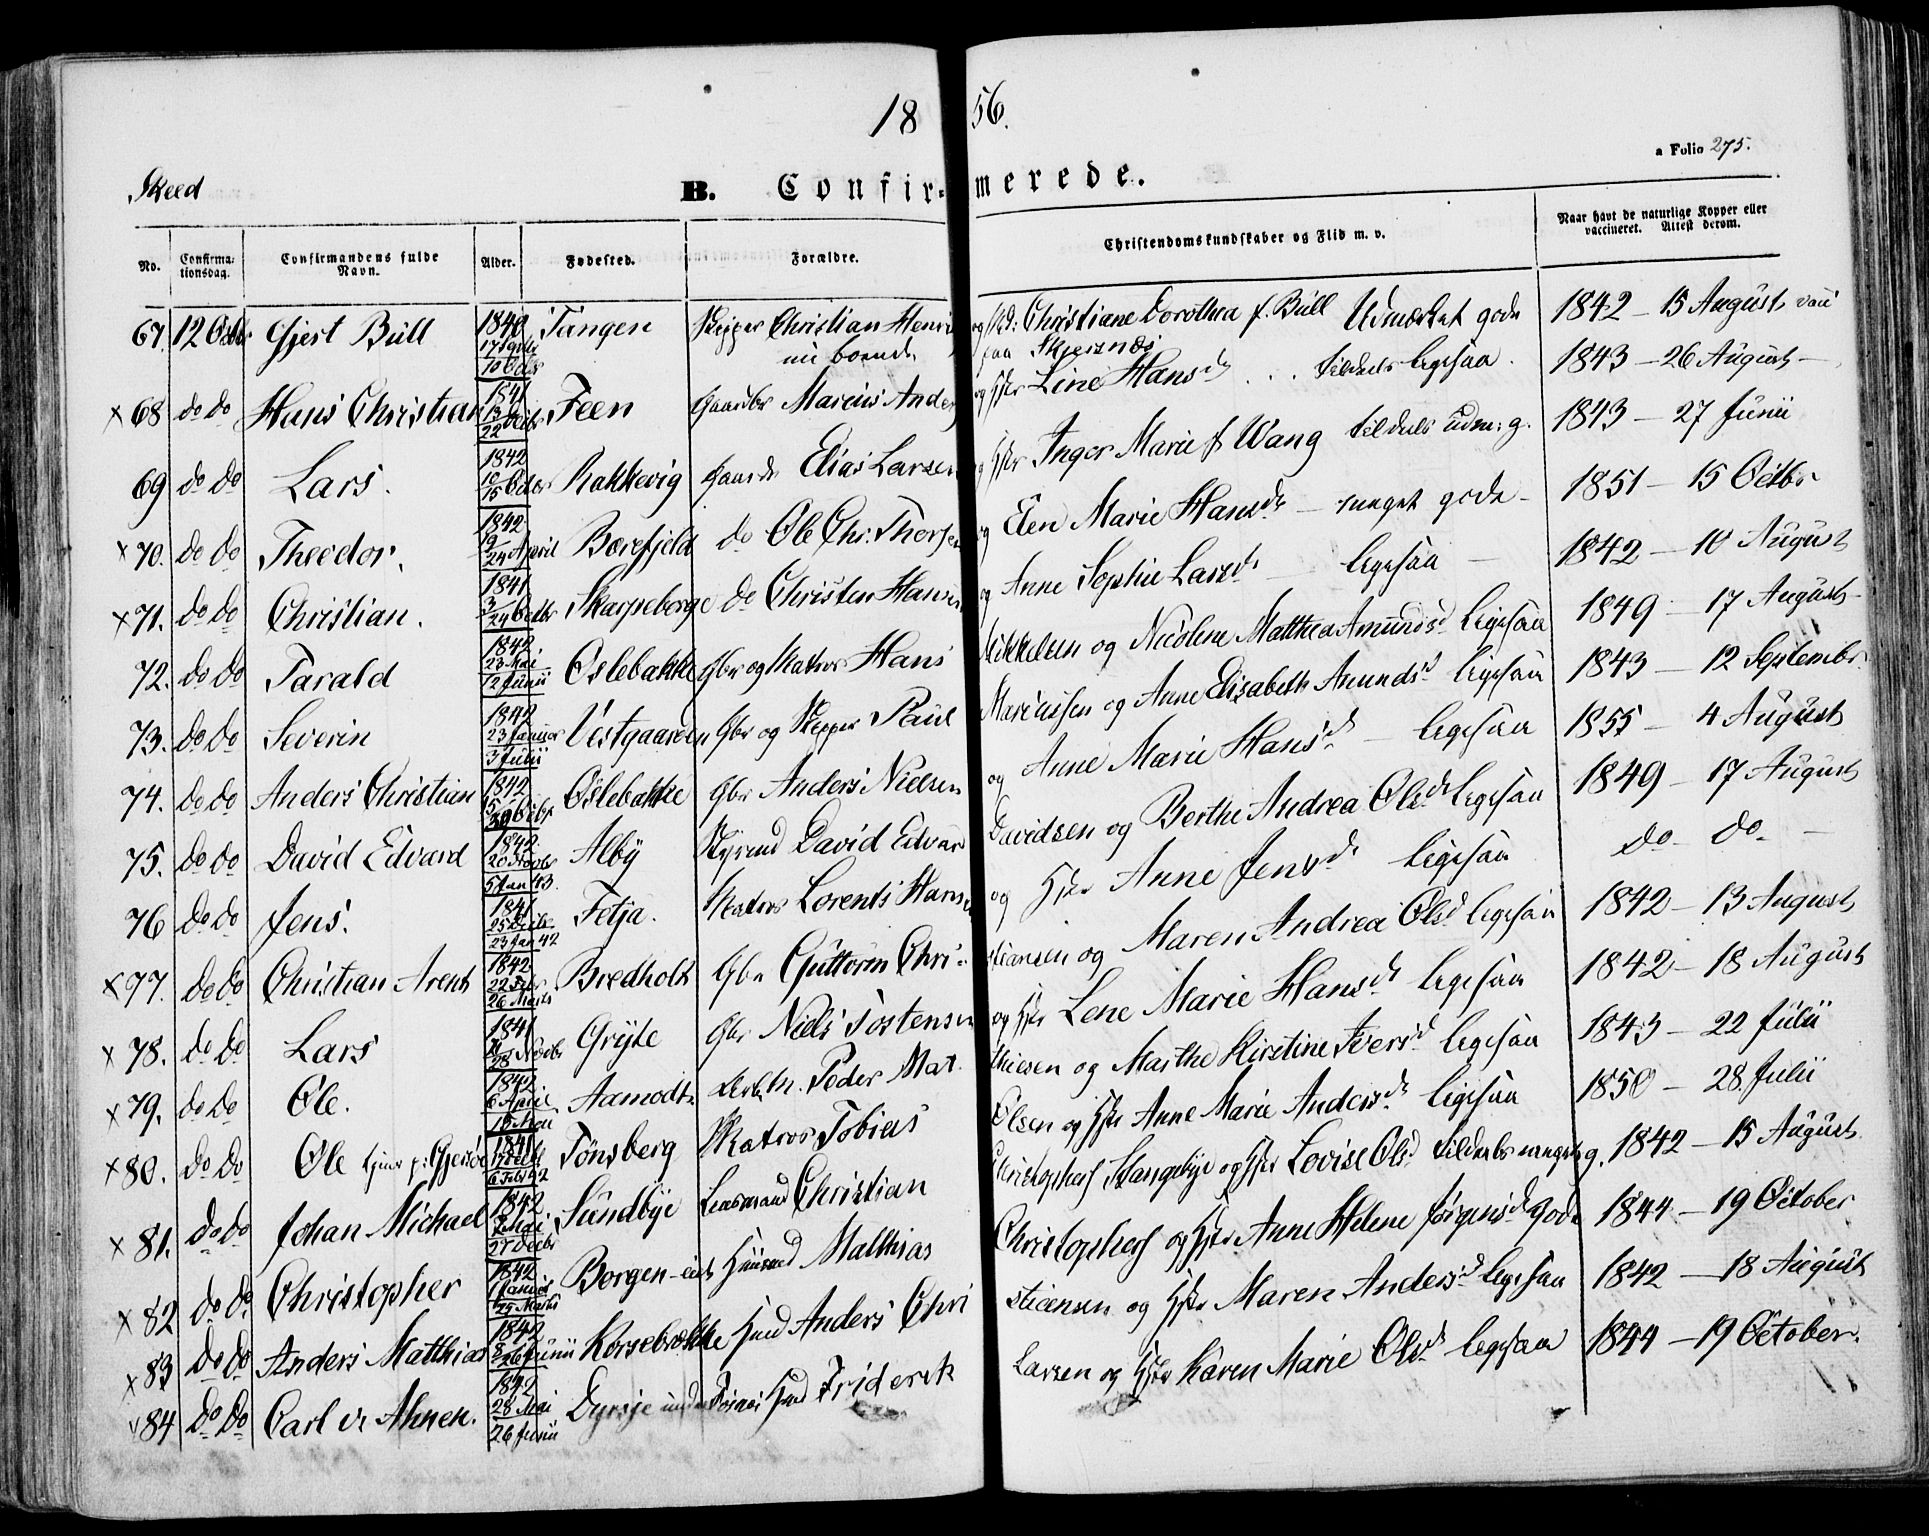 18 56.
a Folio 275.
Skeed
B. Confir- merede.
No. Confirma-tionsdag. Confirmandens fulde Navn. Alder. Fødested. Forældre. Christendomskundskaber og Flid m. v. Naar havt de naturlige Kopper eller vaccineret. Attest derom.
67. 12 Octbr Gjert Bull 1840 Tangen Skipper Christian Henri og Christiane Dorothea f. Bull Udmærket gode 1842 – 15 August
nu boende paa Skjersnæs
× 68 do do Hans Christian 1841 Feen Gaardbr Marius Anders og Hstr Line Hansd. Ligesaa 1843 – 26 August –
69 do do Lars. 1842 Rakkevig Gaardbr Elias Larsen og Hstr Inger Marie f Wang udm: g. 1843 – 27 Junii
× 70. do do Theodor. 1842 24 April Bærefjeld do Ole Chr. Thorsen og Elen Marie Hansd. – meget gode – 1851 – 15 Octbr
× 71. do do Christian. 1841 3/24 Octbr Skarpeborge do Christen Hansen og Anne Sophie Larsd. – ligesaa – 1842 – 10 August
72. do do Tarald 1842 23 Mai 12 Junii Oslebakke Gbr og Matros Hans Mikkelsen og Nicoline Matthea Amundsd. ligesaa 1849 – 17 August
73. do do Severin 1842 23 Januar 3 Julii Vestgaarden Gbr og Skipper Paul Mariussen og Anne Elisabeth Amundsd. ligesaa 1843 – 12 Septembr.
74. do do Anders Christian 1842 Oslebakke Gbr Anders Nielsen og Anne Marie Hansd. – ligesaa 1855 – 4 August
75. do do David Edvard 1842 20 Novbr 5 Jan 43. Alby Styrmd David Edvard Davidsen og Berthe Andrea Olsd. ligesaa 1849 – 17 August
76 do do Jens. 1841 25 Decbr 23 Jan 42 Fetja. Matros Lorents Hansen og Hstr Anne Jensd. ligesaa do – do –
× 77. do do Christian Arent 1842 22 Febr 26 Marts Bredholt Gbr Guttorm Chri- stiansen og Maren Andrea Olsd. ligesaa 1842 – 13 August
× 78. do do Lars 1841 28 Novbr Gryte Gbr Niels Tostensen og Hstr Lene Marie Hansd. ligesaa 1842 – 18 August
× 79. do do Ole. 1842 6 April 15 Mai Aamodt Peder Mat- thiesen og Marthe Kirstine Iversd. ligesaa 1843 – 22 Julii
× 80. do do Ole 1841 6 Febr 42 Tønsberg Matros Tobias Olsen og Hstr Anne Marie Andersd. ligesaa 1850 – 28 Julii
× 81. do do Johan Michael 1842 2 Mai 27 Decbr Sundbye Lensmand Christian Christophers Stangebye og Hstr Lovise Olsd. meget g. 1842 – 15 August
× 82 do do Christopher 1842 1 Januar 29 Marts Borgen-eie Huusmd Matthias Christophers og Hstr Anne Helene Jørgensd. gode 1844 – 19 October
× 83 do do Anders Matthias 1842 Junii Korsebrække Hmd Anders Chri stiansen og Hstr Maren Andersd. ligesaa 1842 – 18 August
84 do do Carl v Ahnen. 1842 28 Mai 26 Junii Dyrsje under Hmd Friderik Larsen og Hstr Karen Marie Olsd. ligesaa 1844 – 19 October.